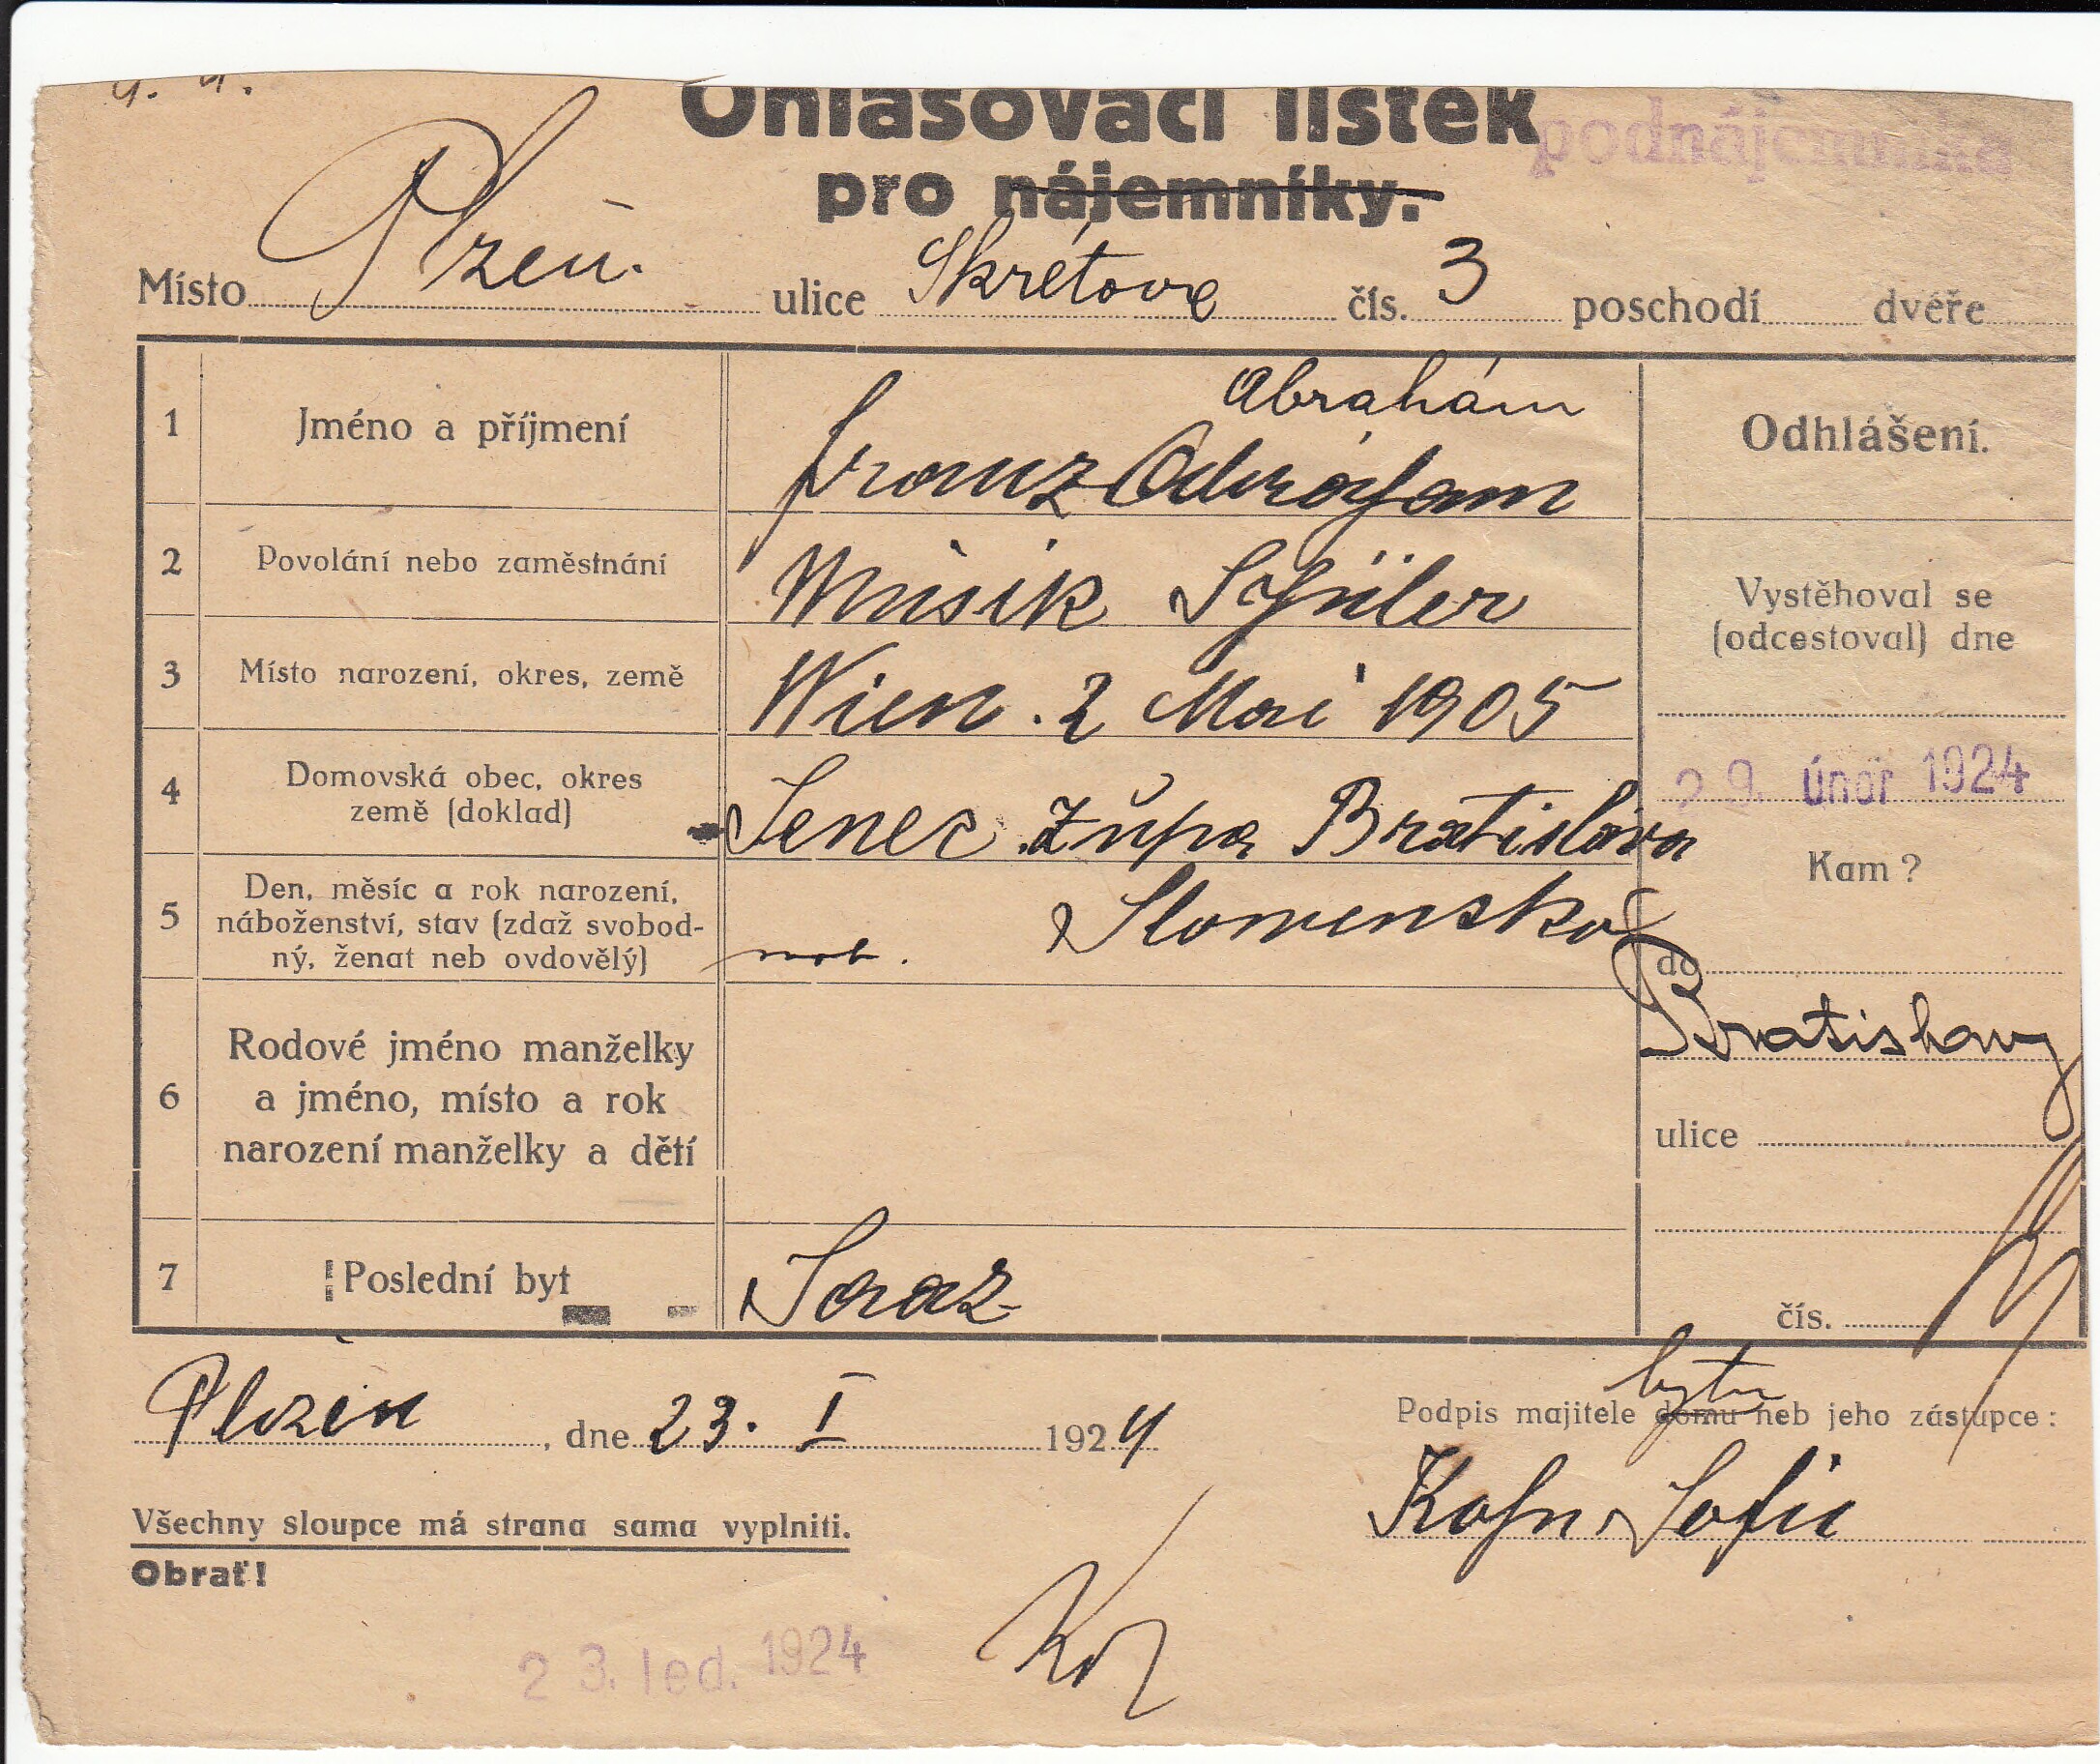 Ohlašovací lístek
podnájemníka
pro nájemníky.
Místo Plzeň. ulice Skrétova čís. 3 poschodí dvéře
Abrahám
1 Jméno a příjmení Franz Abraham Odhlášení.
2 Povolání nebo zaměstnání Musik Schüler
Vystěhoval se
(odcestoval) dne
3 Místo narození, okres, země Wien. 2 Mai 1905
29. únor 1924
4 Domovská obec, okres
země (doklad) Senec župa Bratislava
Kam?
5 Den, měsíc a rok narození,
náboženství, stav (zdaž svobod-
ný, ženat neb ovdovělý) Slovensko
do
Bratislavy
6 Rodové jméno manželky
a jméno, místo a rok
narození manželky a dětí
ulice
7 Poslední byt Saaz
čís.
bytu
Podpis majitele domu neb jeho zástupce:
Plzeň, dne 23. I 1924
Kohn Sofie
Všechny sloupce má strana sama vyplniti.
Obrať!
23. led. 1924